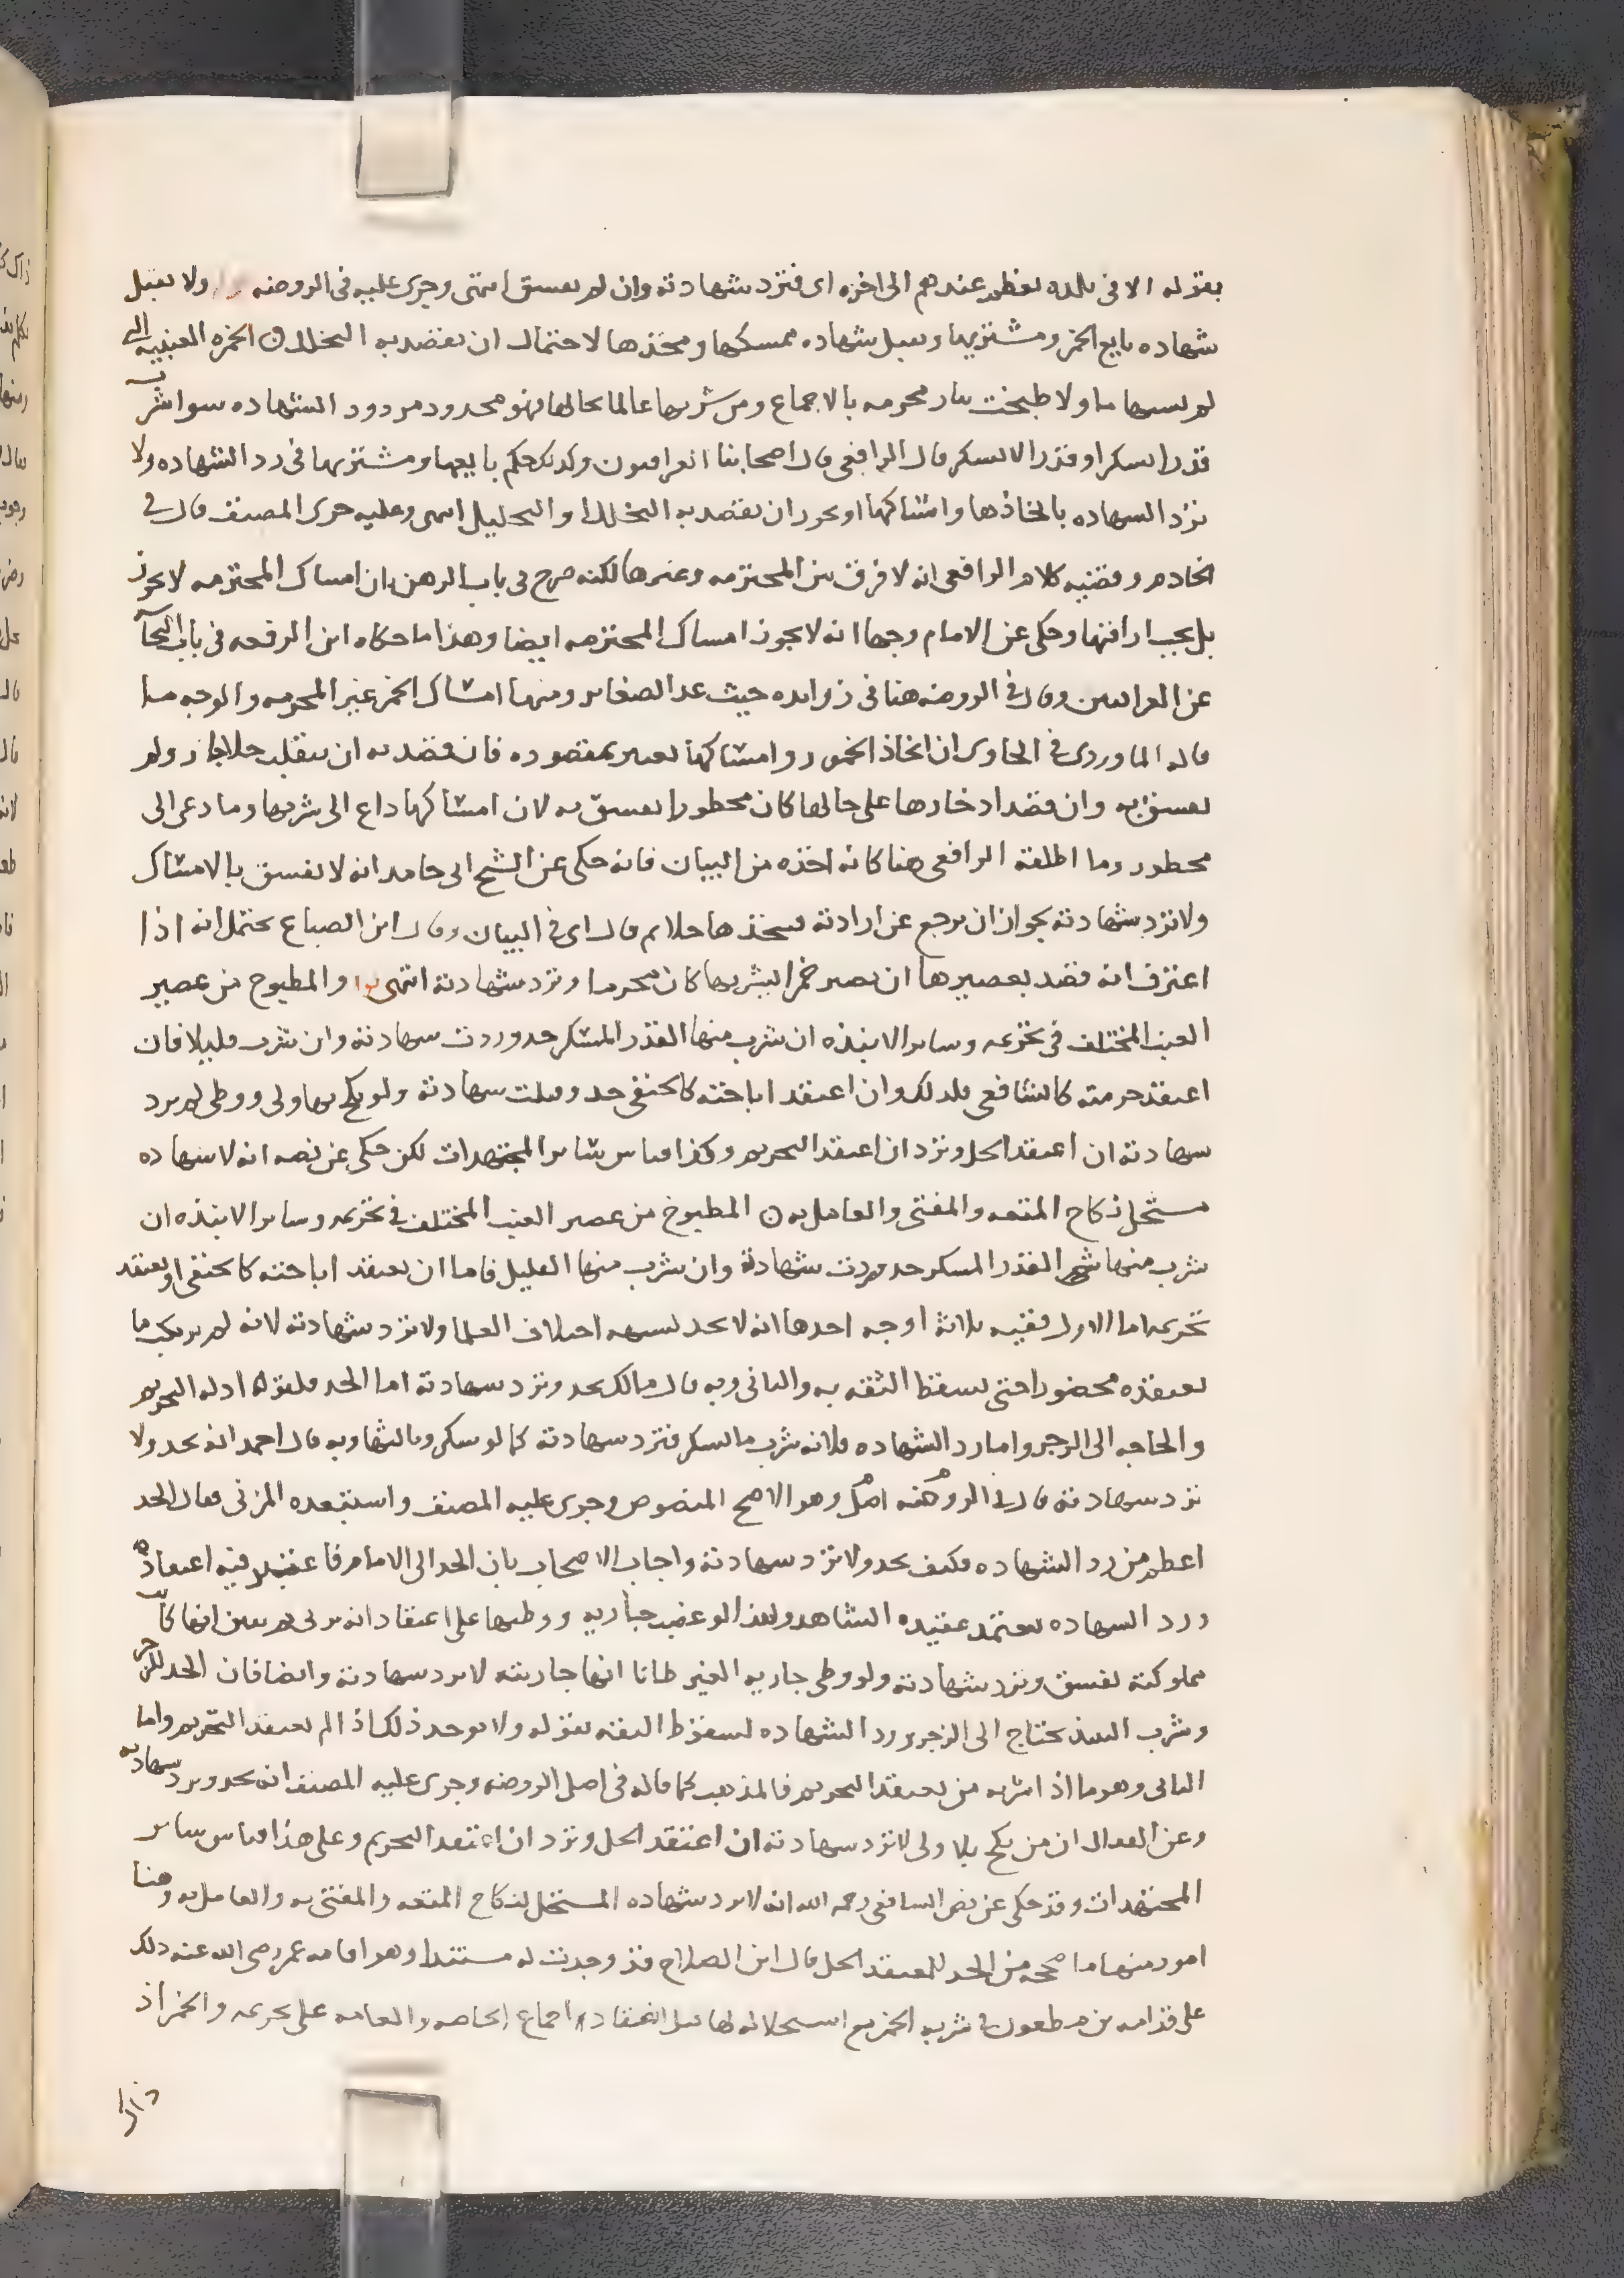 بقوله الا فى بلده يعظم عندهم الى اخره اى فترد شهادته وان لم يفسق انتهى وجرى عليه فى الروضه ولا تقبل
شهاده بايع الخمر ومشتريها وتقبل شهاده ممسكها ومتخذها لاحتمال ان يقصد به التخلل الخمره العنبيه التى
لم يشبها ما ولا طبخت بنار محرمه بالاجماع ومن شربها عالما بحالها فهو محدود مردود الشهاده سوا شرب
قدرا يسكر او قدرا لا يسكر قال الرافعى قال اصحابنا العراقيون وكذلك حكم بايعها ومشتريها فى رد الشهاده ولا
ترد الشهاده باتخاذها وامساكها او يجوز ان يقصد به التخلل او التحليل انتهى وعليه جرى المصنف قال فى
الخادم وقضيه كلام الرافعى انه لا فرق بين المحترمه وغيرها لكنه صرح فى باب الرهن ان امساك المحترمه لا يجوز
بل يجب اراقتها وحكى عن الامام وجها انه لا يجوز امساك المحترمه ايضا وهذا ما حكاه ابن الرفعه فى باب
عن العراقيين وقال فى الروضه هنا فى زوايده حيث عد الصغاير ومنها امساك الخمر غير المحرمه والوجه ما
قاله الماوردى فى الحاوى ان اتخاذ الخمور وامساكها يعتبر بمقصوده فان قصد به ان ينقلب خلا جاز ولم
يفسق به وان قصد ادخارها على حالها كان محظورا يفسق به لان امساكها داع الى شربها وما دعى الى
محظور وما اطلقه الرافعى هنا كانه اخذه من البيان فانه حكى عن الشيخ ابى حامد انه لا يفسق بالامساك
ولا ترد شهادته لجواز ان يرجع عن ارادته فيتخذها خلا ثم قال اى فى البيان وقال ابن الصباغ يحتمل انه اذا
اعترف انه قصد بعصيرها ان يصير خمرا ليشربها كان محرما وترد شهادته انتهى والمطبوخ من عصير
العنب المختلف فى تحريمه وساير الانبذه ان شرب منها القدر المسكر حد وردت شهادته وان شرب قليلا فان
اعتقد حرمته كالشافعى فكذلك وان اعتقد اباحته كالحنفى حد وقبلت شهادته ولو نكح بلا ولى ووطى لم ترد
شهادته ان اعتقد الحل وترد ان اعتقد التحريم وكذا قياس ساير المجتهدات لكن حكى عن نصه انه لا شهاده
مستحل نكاح المتعه والمفتى والعامل به المطبوخ من عصير العنب المختلف فى تحريمه وساير الانبذه ان
شرب منها القدر المسكر حد وردت شهادته وان شرب منها القليل فاما ان يعتقد اباحته كالحنفى او يعتقد
تحريمه اما الاول ففيه ثلاثه اوجه احدها انه لا يحد لشبهه اختلاف العلما ولا ترد شهادته لانه لم يرتكب ما
يعتقده محضورا حتى يسقط الثقه به والثانى وبه قال مالك يحد وترد شهادته اما الحد فلقوه ادله التحريم
والحاجه الى الزجر واما رد الشهاده فلانه شرب ما يسكر فترد شهادته كما لو سكر وثالثها وبه قال احمد انه يحد ولا
ترد شهادته قال فى الروضه وهو الاصح المنصوص وجرى عليه المصنف واستبعده المزنى فقال الحد
اعظم من رد الشهاده فكيف يحد ولا ترد شهادته واجاب الاصحاب بان الحد الى الامام فاعتبر فيه اعتقاده
ورد الشهاده يعتمد عقيده الشاهد ولهذا لو غصب جاريه ووطيها على اعتقاد انه يزنى ثم تبين انها كانت
مملوكته يفسق وترد شهادته ولو وطى جاريه الغير ظانا انها جاريته لا ترد شهادته وايضا فان الحد للزجر
وشرب النبيذ يحتاج الى الزجر ورد الشهاده لسقوط الثقه بقوله ولا يوجد ذلك اذا لم يعتقد التحريم واما
الثانى وهو ما اذا شربه من يعتقد التحريم فالمذهب كما قاله فى اصل الروضه وجرى عليه المصنف انه يحد وترد شهادته
وعن القفال ان من نكح بلا ولى لا ترد شهادته ان اعتقد الحل وترد ان اعتقد التحريم وعلى هذا قياس ساير
المجتهدات وقد حكى عن نص الشافعى رحمه الله انه لا ترد شهاده المستحل لنكاح المتعه والمفتى به والعامل به وهنا
امور منها ما صححه من الحد للمعتقد الحل قال ابن الصلاح قد وجدت له مستندا وهو اقامه عمر رضى الله عنه ذلك
على قدامه بن مظعون فى شربه الخمر مع استحلاله لها قبل انعقاد اجماع الخاصه والعامه على تحريمه والخمر اذ
ذاك